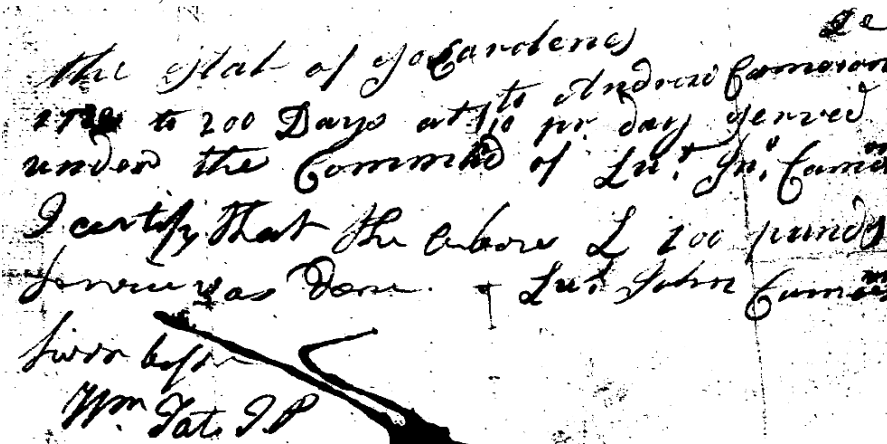 De
The Stat of So Cardenes
to Andrew Cameron
to 200 Days at 1,0 pr. day Served
under the Command of Lut. Jno. Came
I certify that the above L 200 punds
Servic was Done. Lut John Came
Sworn befor
Wm. Tate J.P